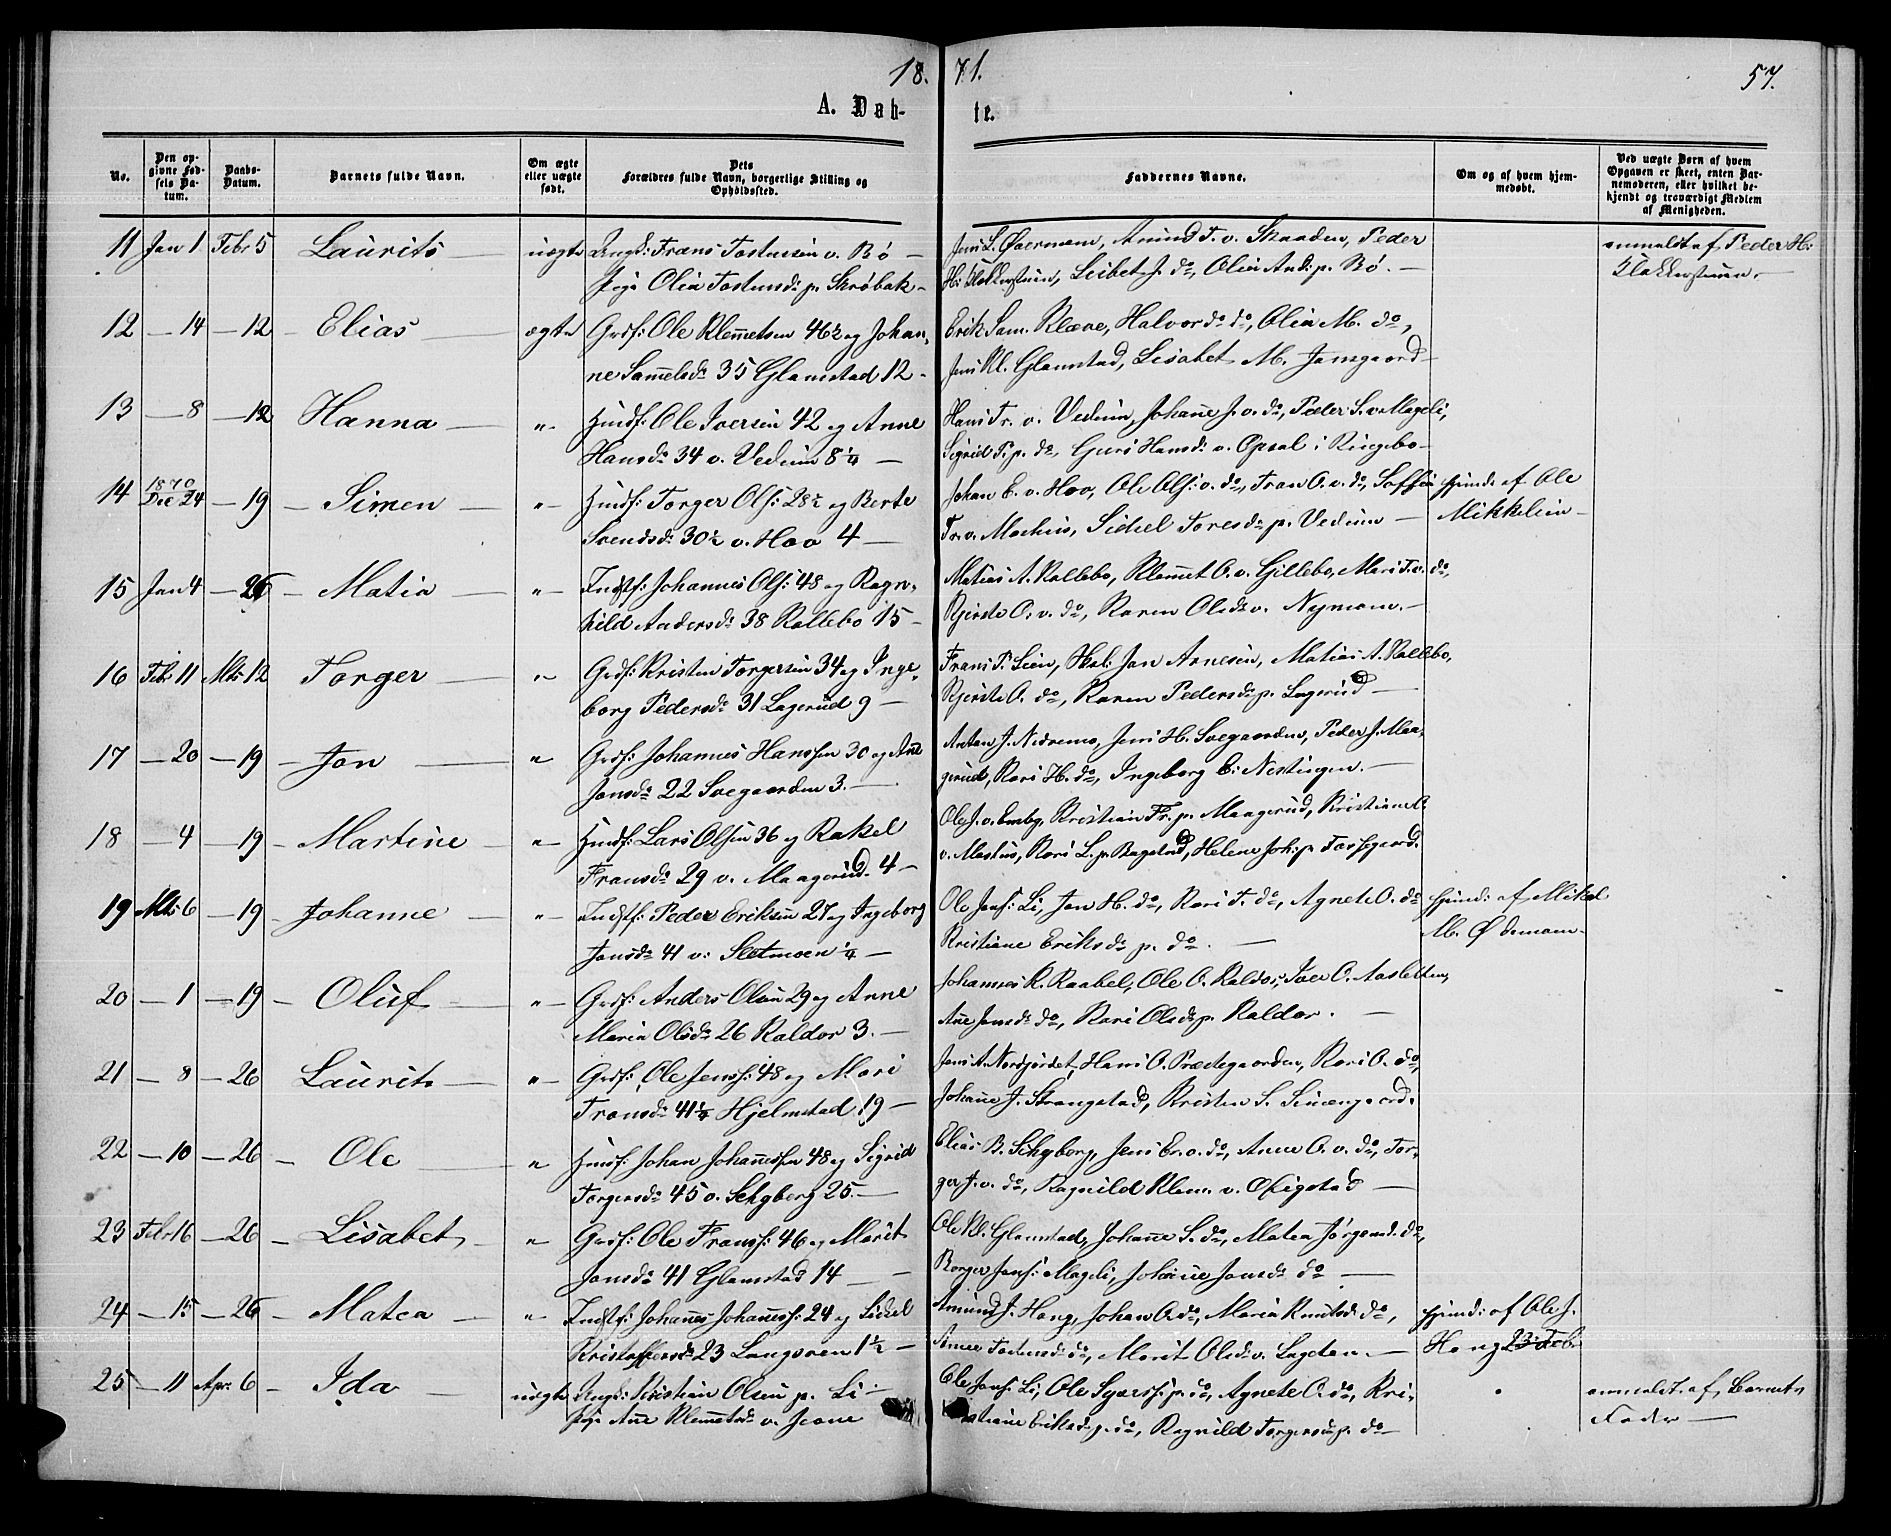 18. 71. 57.
A. Døb- te.
No.
Den op-
givne Fød-
sels Da-
tum.
Daabs-
Datum.
Barnets fulde Navn.
Om ægte
eller uægte
født.
Dets
Forældres fulde Navn, borgerlige Stilling og
Opholdssted.
Faddernes Navne.
Om og af hvem hjem-
medøbt.
Ved uægte Børn af hvem
Opgaven er skeet, enten Bar-
nemoderen, eller hvilket be-
kjendt og troværdigt Medlem
af Menigheden.
11 Jan 1 Febr 5 Laurits uægte Ungk: Frans Tostensen v. Bø
Pige Olia Tostensd: p. Skrøbak
Jens L. Øvermoen, Amund T. v. Skaaden, Peder
H: Klokkerstuen, Lisbet J. do, Olia And: p. Bø.
anmeldt af Peder H:
Klokkerstuen
12 - 14 - 12 - Elias ægte Grdf: Ole Klemetsen 46½ og Johan-
ne Samelsdr 35 Glamstad 12
Erik Sam. Kleve, Halvor do do, Olia M. do,
Jens Kl. Glamstad, Lisabet M. Jonsgaard
13 - 8 - 12 Hanna " Husf: Ole Iversen 42 og Anne
Hansdr 34 v. Vedum 8¼
Hans Tr. v. Vedum, Johanne J. v. do, Peder S. v. Mageli,
Sigrid P. p. do, Guri Hansdr v. Opsal i Ringebo
14 1870 Dec 24 - 19 - Simen " Husf: Torger Ols: 28½ og Berte
Svendsdr 30½ v. Hov 4
Johan E. v. Hov, Ole Ols: v. do, Frans O. v. do, Soffie
Tr. v. Moshus, Sidsel Toresdr p. Vedum
hjemd: af Ole
Mikkelsen
15 Jan 4 - 26 - Matia " Indstf: Johannes Ols: 48 og Ragn-
hild Andersdr 38 Kollebo 15
Matias A. Kollebo, Klemet O. v. Gillebo, Mari T. v. do,
Kjerste O. v. do, Karen Olsdr v. Nymoen.
16 Feb: 11 Mts 12 Torger " Grdf: Kristen Torgersen 34 og Inge-
borg Pedersdr 31 Lagerud 9
Frans P. Lien, Skol: Jan Arnesen, Matias A. Kollebo,
Kjerste O. do, Karen Pedersdr p. Lagerud
17 - 20 - 19 - Jon " Grdf: Johannes Hanssen 30 og Anne
Jonsdr 22 Svegaarden 3.
Anton J. Nedremo, Jens H. Svegaarden, Peder J. Maa-
gerud, Kari H. do, Ingeborg E: Nestingen.
18 - 4 - 19 - Martine " Husf: Lars Olsen 36 og Rakel
Fransdr 29 v. Maagerud 4
Ole J. v. Enebg, Kristian Fr. p. Maagerud, Kristiane E.
v. Moshus, Kari L. p. Bagstad, Helene Joh: p. Tofsgard.
19 Mts 6 - 19 - Johanne " Indstf: Peder Eriksen 27 og Ingeborg
Jonsdr 41 v: Sletmoen ¼
Ole Jons: Li, Jon H. do, Kari T. do, Agnete O. do
Kristiane Eriksdr p. do.
hjemd: af Mikal
M. Ødemoen
20 - 1 - 19 - Oluf " Grdf: Anders Olsen 29 og Anne
Maria Olsdr 26 Kaldor 3.
Johannes K. Raabel, Ole O. Kaldor, Iver O. Aasletten,
Anne Jonsdr do, Kari Olsdr p. Kaldor.
21 - 8 - 26 Laurits " Grdf: Ole Jenss: 48 og Mari
Fransdr 41¼ Hjelmstad 19
Jens A. Nordjordet, Hans O. Prestegaarden, Kari O. do,
Johanne J. Strangstad, Kristen S. Simengaard.
22 - 10 - 26 - Ole " Husf: Johan Johannessen 48 og Sigrid
Torgersdr 45 v. Selgberg 25
Elias B. Selgberg, Jens Er. v. do, Anne O. v. do, Tor-
ger J. v. do, Ragnild Klem. v. Oxigstad
23 Febr 16 - 26 - Lisabet " Grdf: Ole Franss: 46 og Marit
Jonsdr 41 Glamstad 14
Ole Kl. Glamstad, Johanne S. do, Matea Jørgensd. do,
Borger Jons: Mageli, Johanne Jonsdr do
24 - 15 - 26 - Matea " Indstf: Johannes Johanness: 24 og Sidsel
Kristoffersdr 23 Langsven 1½
Amund J. Haug, Johan A. do, Maria Knutsdr do,
Anne Tostensdr do, Marit Olsdr v. Lagden.
hjemd: af Ole J.
Haug 23. Feb.
25 - 11 Apr: 6 - Ida uægte Ungk: Kristian Olsen p. Li
Pige Anne Klemetsdr v. Jevne
Ole Jons: Li, Ole Syverss: p. do, Agnete O. do, Kri-
stiane Eriksdr p. do, Ragnild Torgersen p. do
anmeldt af Barnets
Fader